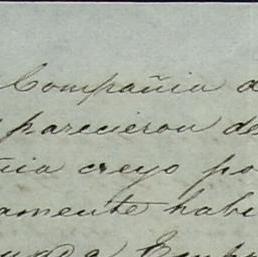 Compañia d
parecieron de
cia creyo po
amente habi